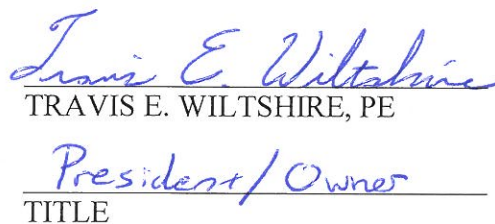 Travis E. Wiltshire
TRAVIS E. WILTSHIRE, PE
President/Owner
TITLE